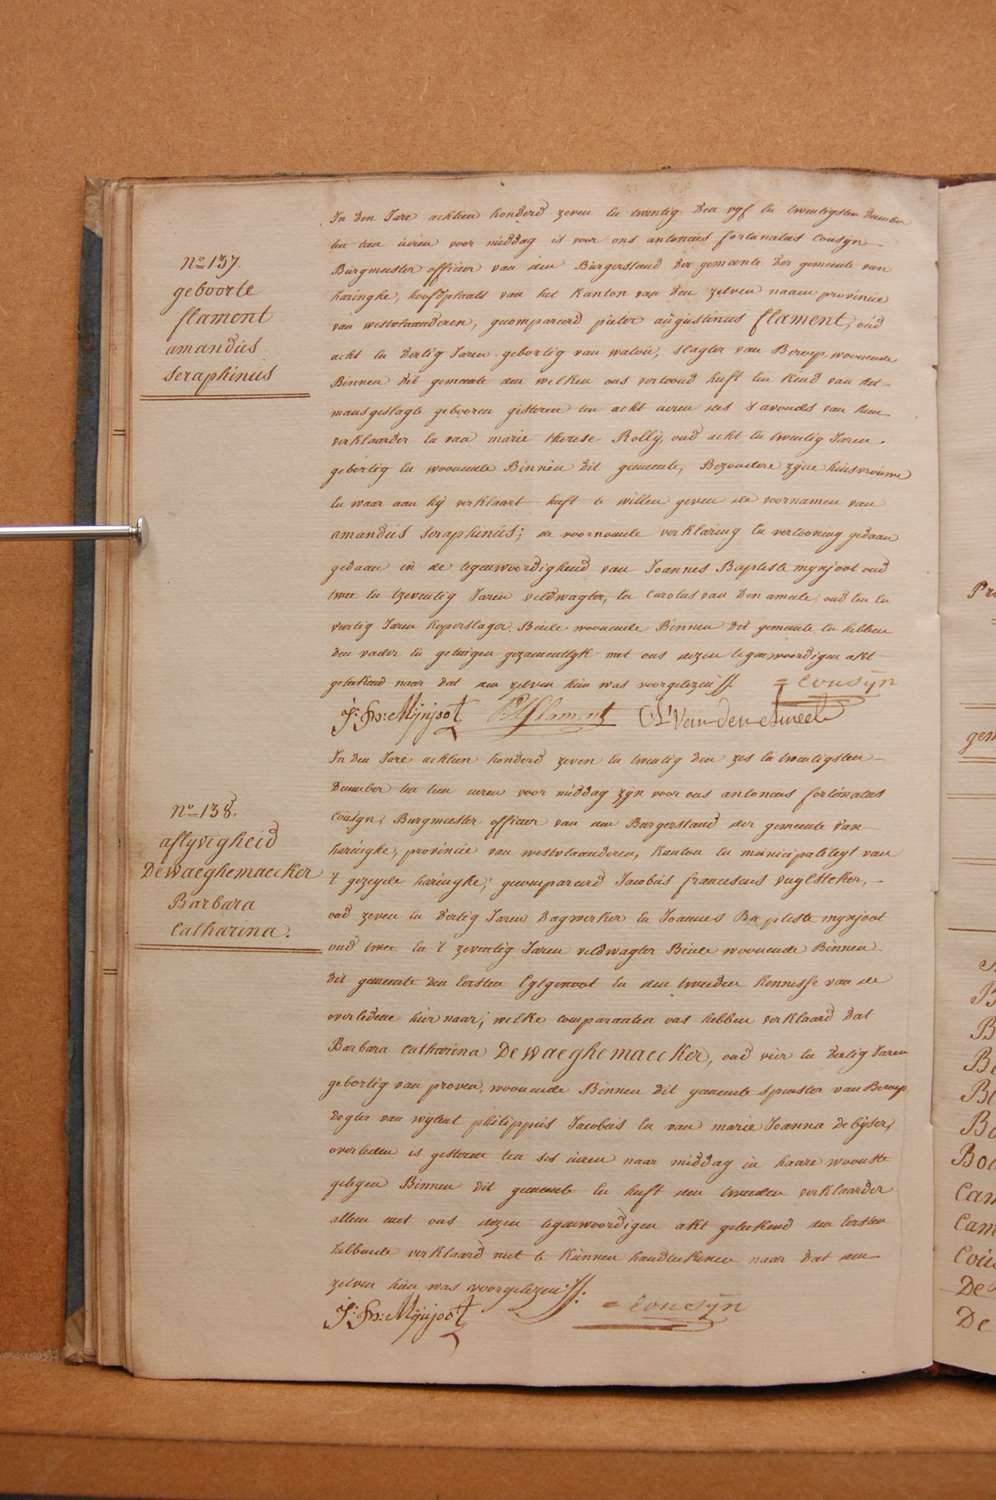 N.° 137.
geboorte
flament
amandus
seraphinus
In den Jare achtien honderd zeven en twintig den vyf en twintigsten december
ten tien uren voor middag is voor ons antonius fortunatus Cousyn
Burgmeester officier van den Burgerstand der gemeente der gemeente van
haringhe, hoofdplaats van het Kanton van den zelven naam provincie
van westvlaanderen, gecompareerd pieter augustinus flament, oud
acht en dertig Jaren gebortig van watou, slagter van Beroep woonende
Binnen dit gemeente den welken ons vertoond heeft een kind van het
mansgeslagte geboren gisteren ten acht uren des s'avonds van hem
verklaarder en van marie therese Rolly, oud acht en twintig Jaren
gebortig en woonende Binnen dit gemeente, Bezondere zyne huisvrouwe
en waar aan hy verklaart heeft te willen geven de voornamen van
amandus seraphinus; de voornoemde verklaring en vertooning gedaan
gedaan in de tegenwoordigheid van Joannes Baptiste mynjoot oud
twee en tzeventig Jaren veldwagter, en Carolus van den ameele oud een en
viertig Jaren koperslager Beide woonende Binnen dit gemeente en hebben
den vader en getuigen gezamentlyk met ons dezen tegenwoordigen akt
geteekend naar dat den zelven hun was voorgelezen //.
= Cousÿn
J: Bte: Mÿnjoot P A flament C L Van den Ameele
N.° 138.
aflyvigheid
De waeghemaecker
Barbara
Catharina.
In den Jare achtien honderd zeven en twintig den zes en twintigsten
December ten tien uren voor middag zyn voor ons antonius fortunatus
Cousyn, Burgmeester officier van den Burgerstand der gemeente van
haringhe, provincie van westvlaanderen, Kanton en municipaliteyt van
't gezeyde haringhe, gecompareerd Jacobus franciscus vuylsteker,
oud zeven en dertig Jaren Dagwerker en Joannes Baptiste mynjoot
oud twee en t zeventig Jaren veldwagter Beide woonende Binnen
dit gemeente den Eersten bygenoot en den tweeden kennisse van de
overledene hier naar; welke comparanten ons hebben verklaard dat
Barbara Catharina De waeghemaecker, oud vier en dertig Jaren
gebortig van proven, woonende Binnen dit gemeente spinster van Beroep
dogter van wylent philippus Jacobus en van marie Joanna debÿser,
overleden is gisteren ten ses uren naar middag in haare woonste
gelegen Binnen dit gemeente en heeft den tweeden verklaarder
alleen met ons dezen tegenwoordigen akt geteekend den Eersten
hebbende verklaard niet te kunnen handteekenen naar dat den
zelven hun was voorgelezen. //:
J: Bte: Mÿnjoot = Cousÿn